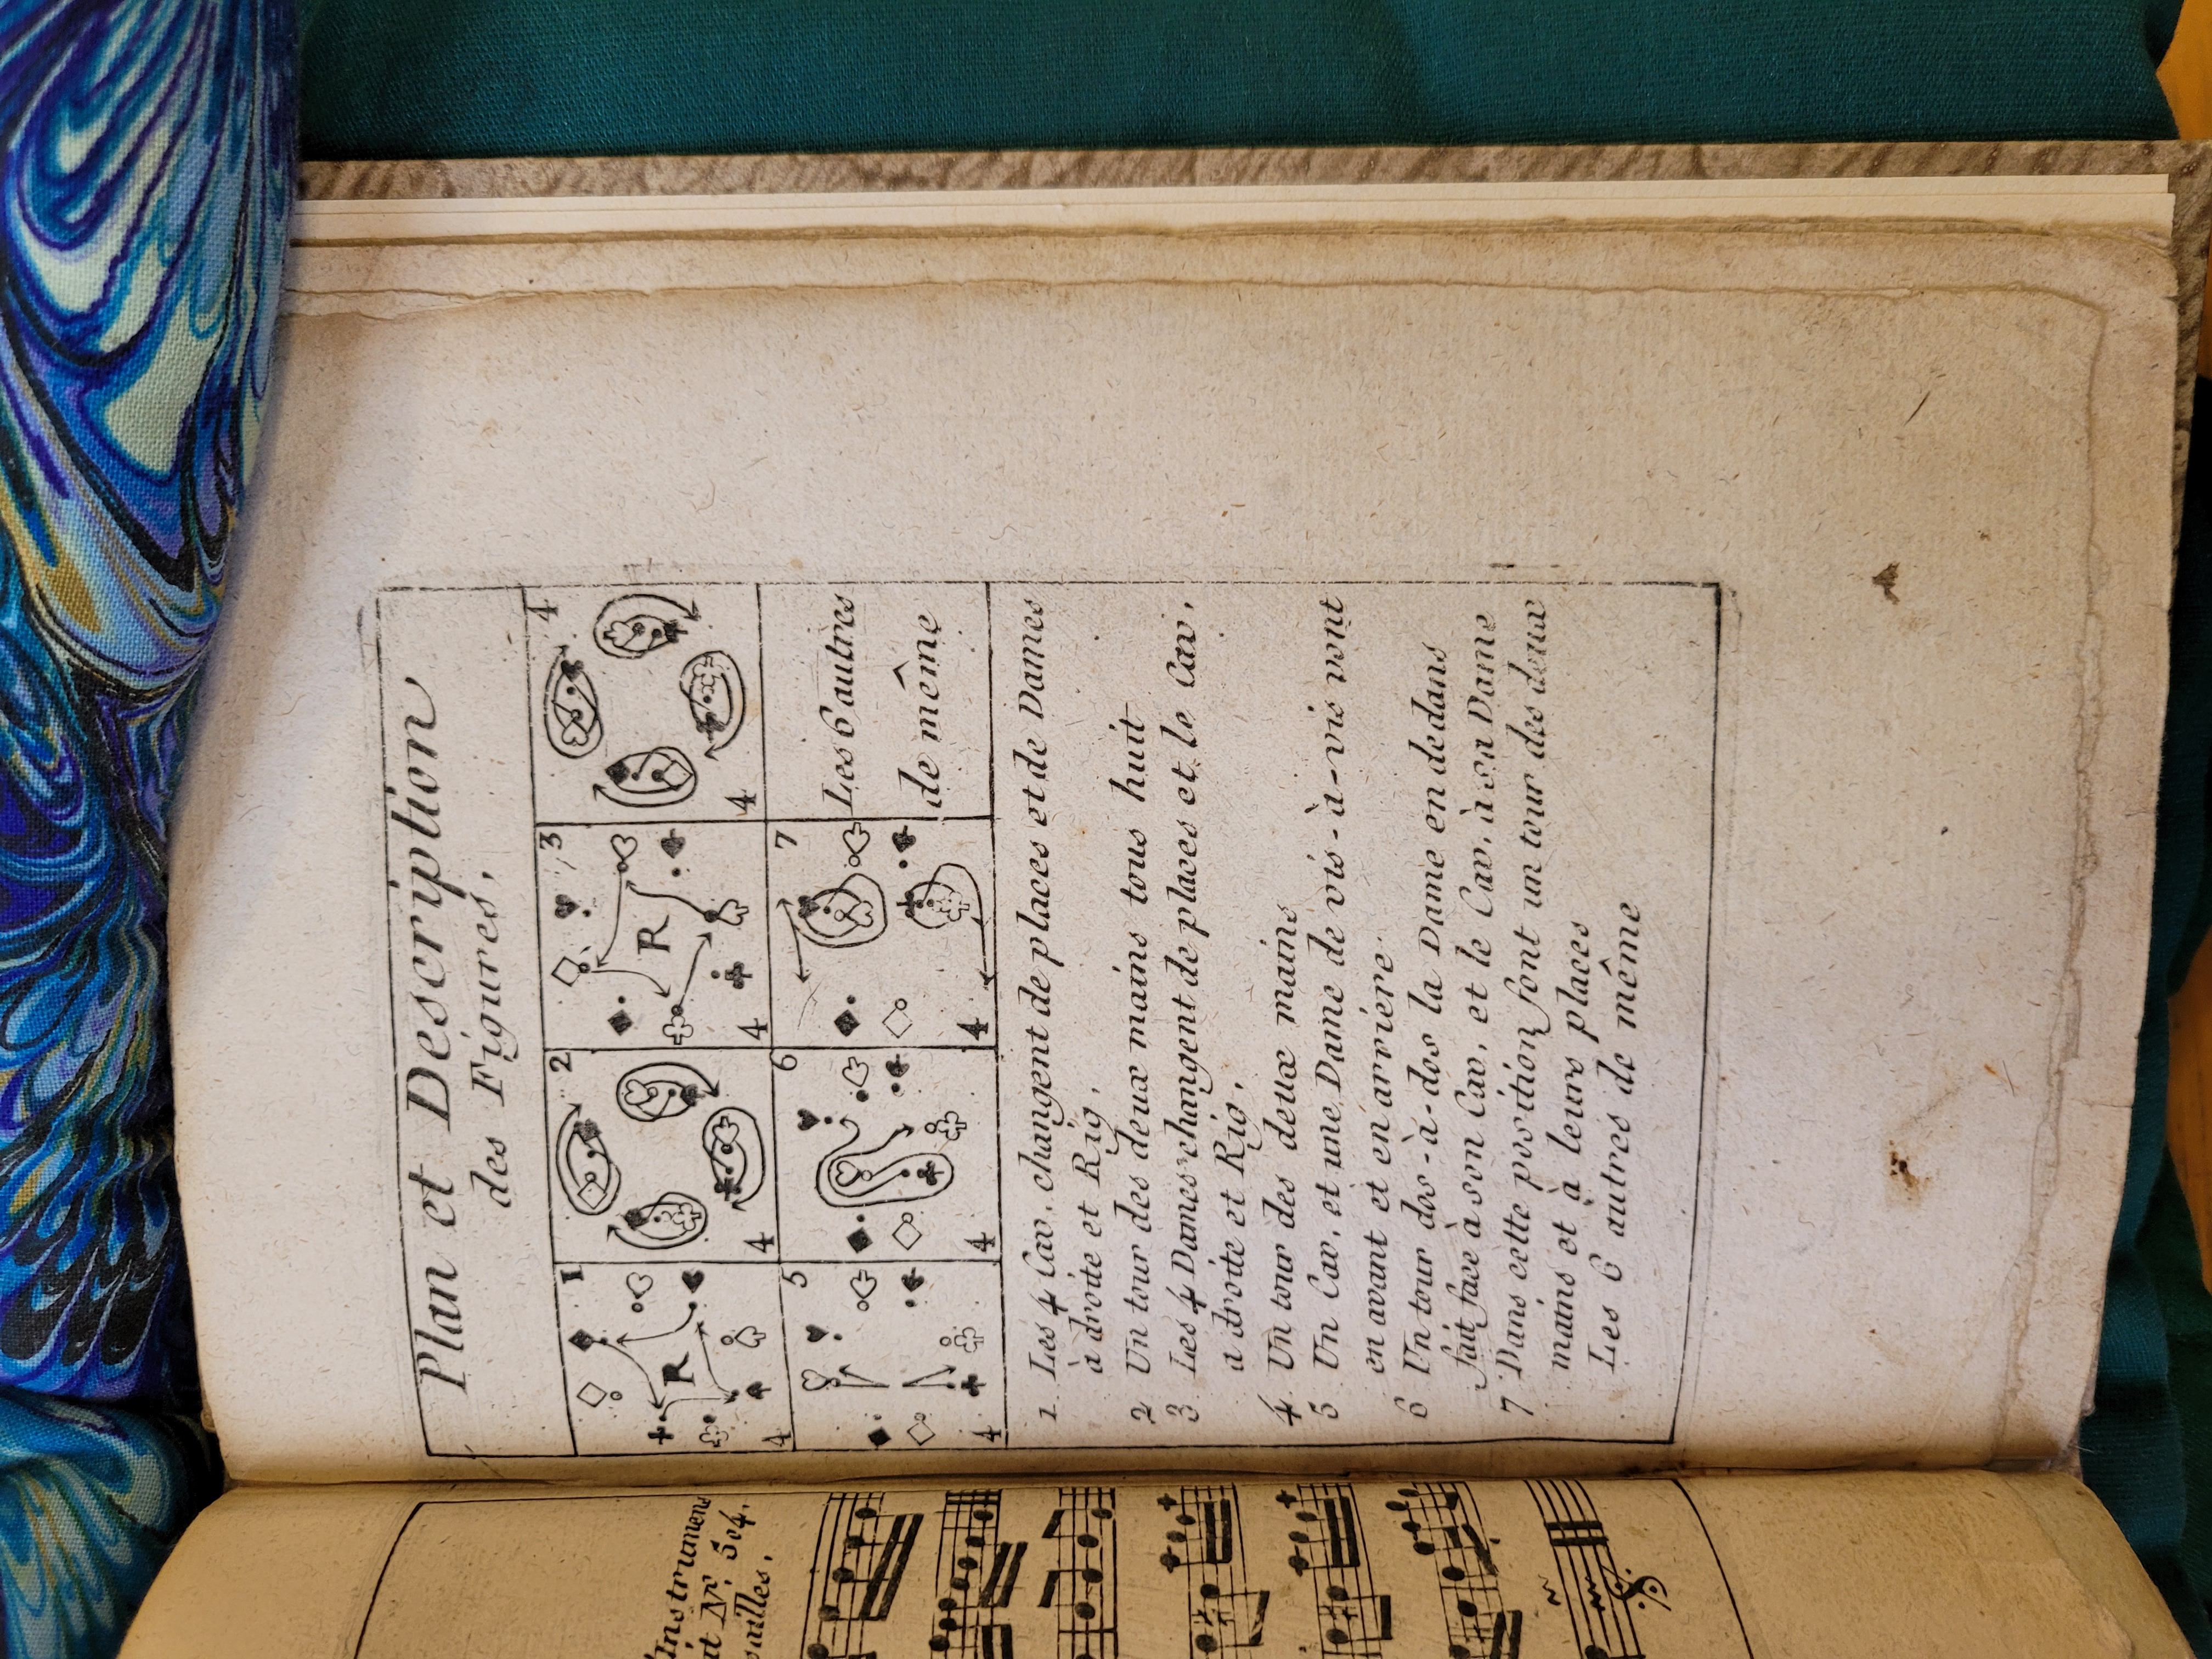 Plan et Description
des Figures.
1 2 3 4
R R
4 4 4 4
5 6 7
Les 6 autres
de même
4 4 4
1. Les 4 Cav. changent de places et de Dames
à droite et Rig.
2 Un tour des deux mains tous huit
3 Les 4 Dames changent de places et le Cav.
a droite et Rig.
4. Un tour des deux mains
5. Un Cav. et une Dame de vis-à-vis vont
en avant et en arriére.
6 Un tour dos-à-dos la Dame en dedans
fait face à son Cav. et le Cav. à sa Dame
7 Dans cette position font un tour des deux
mains et à leurs places
Les 6 autres de même
Instrumens